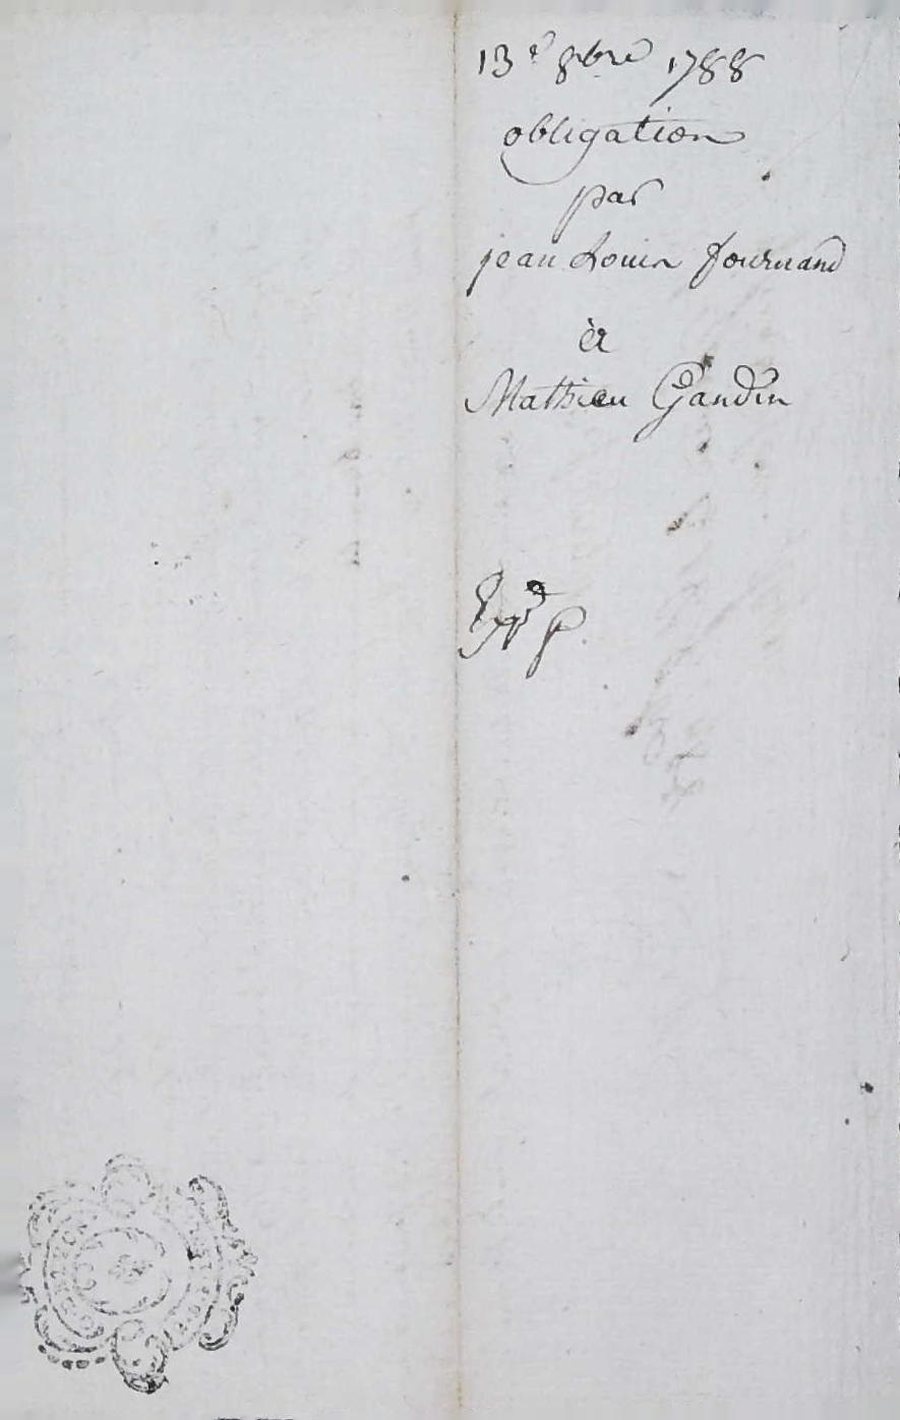 13e 8bre 1788
obligation
par
jean Louis fournand
à
Mathieu Gandin